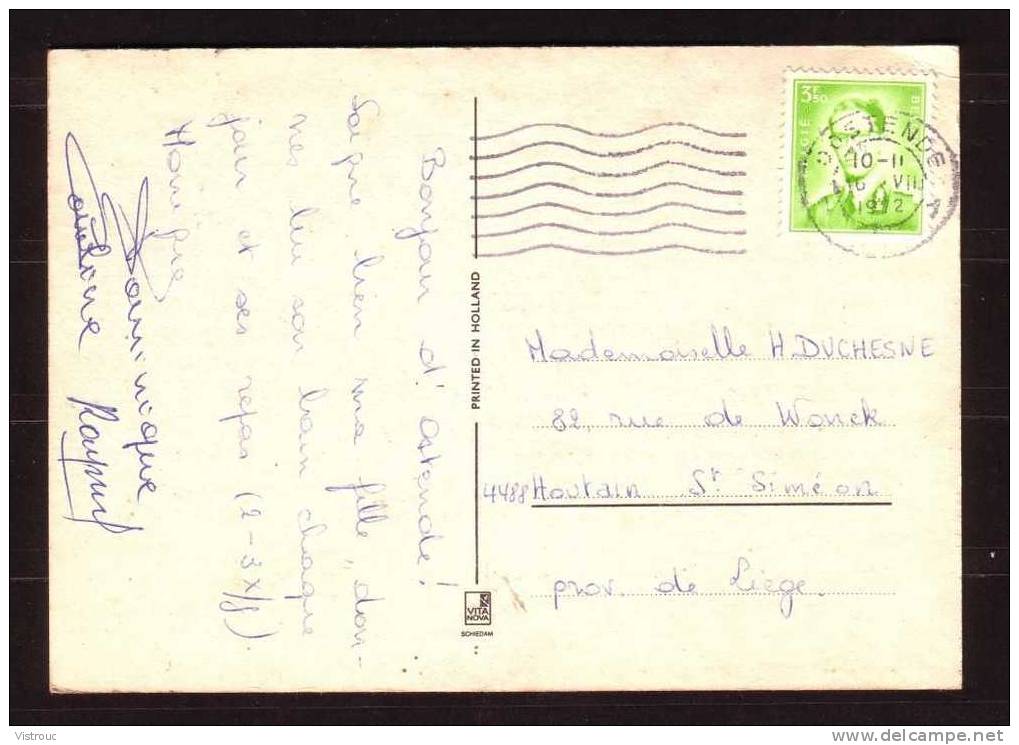 Bonjour d'Ostende!
Soigne bien ma fille, don-
nes lui son bain chaque
jour et ses repas (2-3x/j)
Monique
Dominique
PRINTED IN HOLLAND
VITA
NOVA
SCHIEDAM
3F50
BELGIË
OOSTENDE
10-11
16 VIII
1972
Mademoiselle H. DUCHESNE
82, rue de Wonck
4488 Houtain St Siméon
prov. de Liège.
Vistrouc
www.delcampe.net